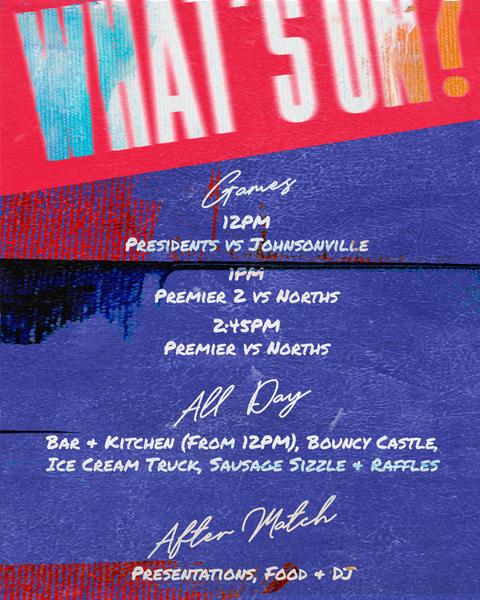 WHAT'S ON?
Games
12PM
PRESIDENTS VS JOHNSONVILLE
1PM
PREMIER 2 VS NORTHS
2:45PM
PREMIER VS NORTHS
All Day
BAR + KITCHEN (FROM 12PM), BOUNCY CASTLE,
ICE CREAM TRUCK, SAUSAGE SIZZLE + RAFFLES
After Match
PRESENTATIONS, FOOD + DJ